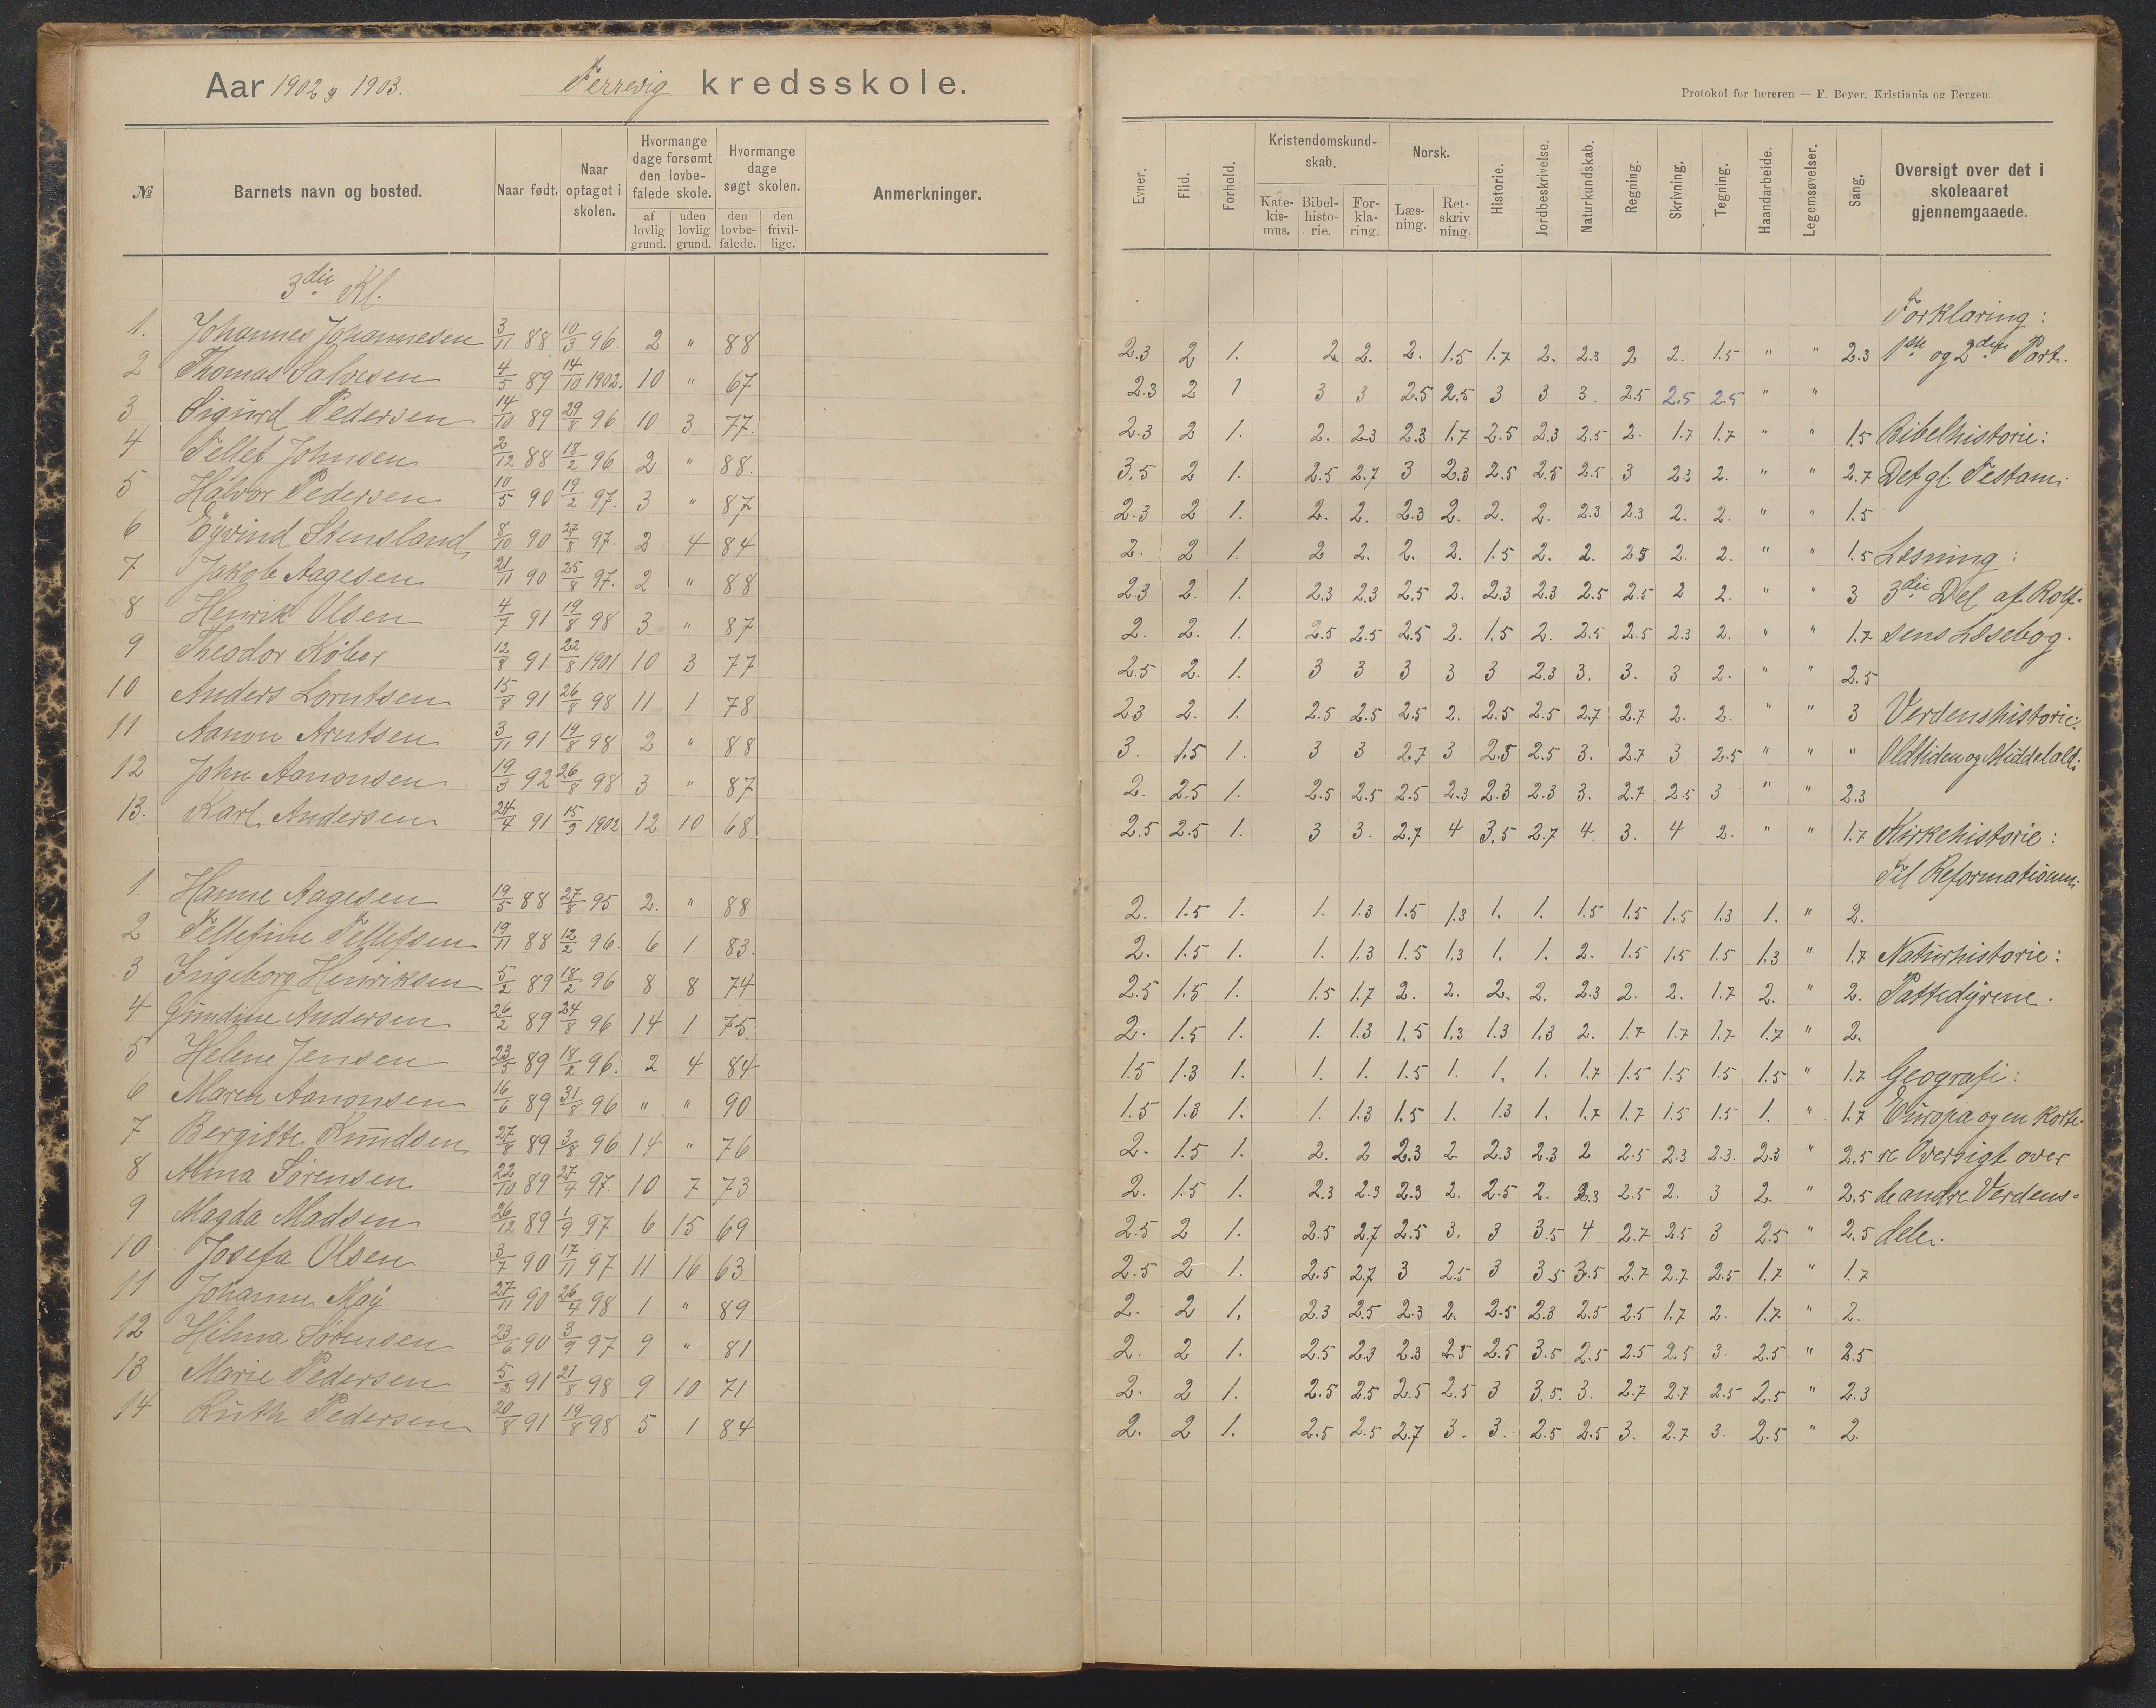 Aar 1902 og 1903. Ferrevig kredsskole.
№ Barnets navn og bosted. Naar født. Naar optaget i skolen. Hvormange dage forsømt den lovbefalede skole. af lovlig grund. uden lovlig grund. Hvormange dage søgt skolen. den lovbefalede. den frivillige. Anmerkninger.
3die Kl.
1. Johannes Johannesen 3/11 88 10/3 96. 2 " 88
2 Thomas Salvesen 4/5 89 14/10 1902. 10 " 67
3 Sigurd Pedersen 14/10 89 29/8 96 10 3 77.
4 Tellef Johnsen 2/12 88 18/2 96 2 " 88.
5 Halvor Pedersen 10/5 90 19/2 97. 3 " 87
6 Eyvind Stensland 8/10 90 27/8 97. 2 4 84
7 Jakob Aagesen 21/11 90 25/8 97. 2 " 88
8 Henrik Olsen 4/7 91 19/8 98 3 " 87
9 Theodor Köber 12/8 91 22/8 1901 10 3 77
10 Anders Lorntsen 15/8 91 26/8 98 11 1 78
11 Aanon Arntsen 3/11 91 19/8 98 2 " 88
12 John Aanonsen 19/3 92 26/8 98 3 " 87
13. Karl Andersen 24/4 91 15/9 1902 12 10 68
1. Hanne Aagesen 19/5 88 27/8 95 2. " 88
2 Tellefine Tellefsen 19/11 88 12/2 96. 6 1 83.
3 Ingeborg Henriksen 5/2 89 18/2 96 8 8 74
4 Gundine Andersen 26/2 89 24/8 96 14 1 75.
5 Helene Jensen 23/5 89 18/2 96. 2 4 84
6 Maren Aanonsen 16/6 89 31/8 96 " " 90
7 Bergitte Knudsen 27/8 89 3/8 96 14 " 76
8 Alma Sörensen 22/10 89 27/4 97. 10 7 73
9 Magda Madsen 26/12 89 1/9 97 6 15 69
10 Josefa Olsen 3/7 90 17/11 97 11 16 63
11 Johanne May 27/11 90 26/4 98 1 " 89
12 Hilma Sörensen 23/6 90 3/9 97 9 " 81
13 Marie Pedersen 5/2 91 21/8 98 9 10 71
14 Ruth Pedersen 20/8 91 19/8 98 5 1 84
Protokol for læreren — F. Beyer, Kristiania og Bergen.
Evner. Flid. Forhold. Kristendomskundskab. Katekismus. Bibelhistorie. Forklaring. Norsk. Læsning. Retskrivning. Historie. Jordbeskrivelse. Naturkundskab. Regning. Skrivning. Tegning. Haandarbeide. Legemsøvelser. Sang. Oversigt over det i skoleaaret gjennemgaaede.
Forklaring:
2.3 2 1. 2. 2. 2. 1.5 1.7 2. 2.3 2 2. 1.5 " " 2.3 1ste og 2den Part.
2.3 2 1 3 3 2.5 2.5 3 3 3. 2.5 2.5 2.5 " "
2.3 2 1. 2. 2.3 2.3 1.7 2.5 2.3 2.5 2. 1.7 1.7 " " 1.5 Bibelhistorie:
3.5 2 1. 2.5 2.7 3 2.3 2.5 2.5 2.5 3 2.3 2. " " 2.7 Det gl. Testam.
2.3 2 1. 2. 2. 2.3 2. 2. 2. 2.3 2.3 2. 2. " " 1.5
2. 2 1. 2 2. 2. 2. 1.5 2. 2. 2.3 2. 2. " " 1.5 Læsning:
2.3 2. 1. 2.3 2.3 2.5 2. 2.3 2.3 2.5 2.5 2 2. " " 3 3die Del af Rolf-
2. 2. 1. 2.5 2.5 2.5 2. 1.5 2. 2.5 2.5 2.3 2. " " 1.7 sens Læsebog.
2.5 2. 1. 3 3 3 3 3 2.3 3. 3. 3 2. " " 2.5
2.3 2. 1. 2.5 2.5 2.5 2. 2.5 2.5 2.7 2.7 2. 2. " " 3 Verdenshistorie:
3. 1.5 1. 3 3 2.7 3 2.5 2.5 3. 2.7 3 2.5 " " " Oldtiden og Middelald.
2. 2.5 1. 2.5 2.5 2.5 2.3 2.3 2.3 3. 2.7 2.5 3 " " 2.3
2.5 2.5 1. 3 3. 2.7 4 3.5 2.7 4. 3. 4 2. " " 1.7 Kirkehistorie:
Til Reformationen.
2. 1.5 1. 1. 1.3 1.5 1.3 1. 1. 1.5 1.5 1.5 1.3 1. " 2.
2. 1.5 1. 1. 1.3 1.5 1.3 1. 1. 2. 1.5 1.5 1.5 1.3 " 1.7 Naturhistorie:
2.5 1.5 1. 1.5 1.7 2. 2. 2. 2. 2.3 2. 2. 1.7 2. " 2. Pattedyrene.
2. 1.5 1. 1. 1.3 1.5 1.3 1.3 1.3 2. 1.7 1.7 1.7 1.7 " 2.
1.5 1.3 1. 1. 1. 1.5 1. 1. 1. 1.7 1.5 1.5 1.5 1.5 " 1.7 Geografi:
1.5 1.3 1. 1. 1.3 1.5 1. 1.3 1. 1.7 1.7 1.5 1.5 1. " 1.7 Europa og en korte-
2. 1.5 1. 2. 2 2.3 2. 2.3 2.3 2 2.5 2.3 2.3. 2.3 " 2.5 re Oversigt over
2. 1.5 1. 2.3 2.3 2.3 2. 2.5 2. 2.3 2.5 2. 3 2. " 2.5 de andre Verdens=
2.5 2 1. 2.5 2.7 2.5 3. 3 3.5 4 2.7 2.5 3 2.5 " 2.5 dele.
2.5 2 1. 2.5 2.7 3 2.5 3 3.5 3.5 2.7 2.7 2.5 1.7 " 1.7
2. 2 1. 2.3 2.5 2.3 2. 2.5 2.3 2.5 2.5 1.7 2. 1.7 " 2.
2. 2 1. 2.5 2.3 2.3 2.5 2.5 3.5 2.5 2.5 2.5 3. 2.5 " 2.5
2. 2 1. 2.5 2.5 2.5 2.5 3 3.5. 3. 2.7 2.7 2.5 2.5 " 2.3
2. 2 1. 2.5 2.5 2.7 3. 3. 2.5 2.5 3. 2.7 3. 2.5 " 2.